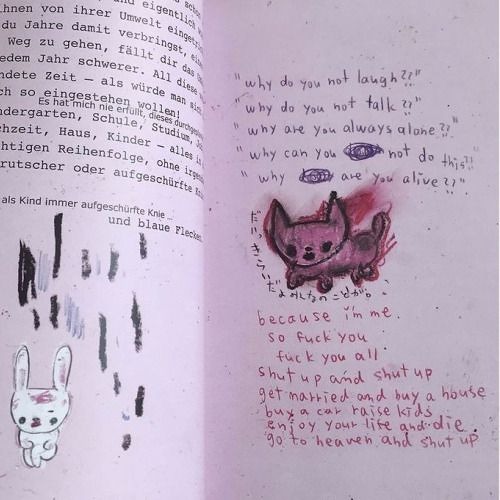 und eigentlich
ihnen von ihrer Umwelt
du Jahre damit verbringst,
Weg zu gehen, fällt dir das
edem Jahr schwerer. All diese
ndete Zeit – als würde man sich
ch so eingestehen wollen!
Es hat mich nie erfüllt, dieses
ndergarten, Schule, Studium,
chzeit, Haus, Kinder – alles
htigen Reihenfolge, ohne
rutscher oder aufgeschürfte
als Kind immer aufgeschürfte Knie ...
und blaue Flecken
"why do you not laugh??"
"why do you not talk??"
"why are you always alone??"
"why can you not do this?!"
"why are you alive??"
だいっきらい
だよみんなのことが。
because i'm me.
so fuck you
fuck you all
shut up and shut up
get married and buy a house
buy a car raise kids
enjoy your life and die.
go to heaven and shut up